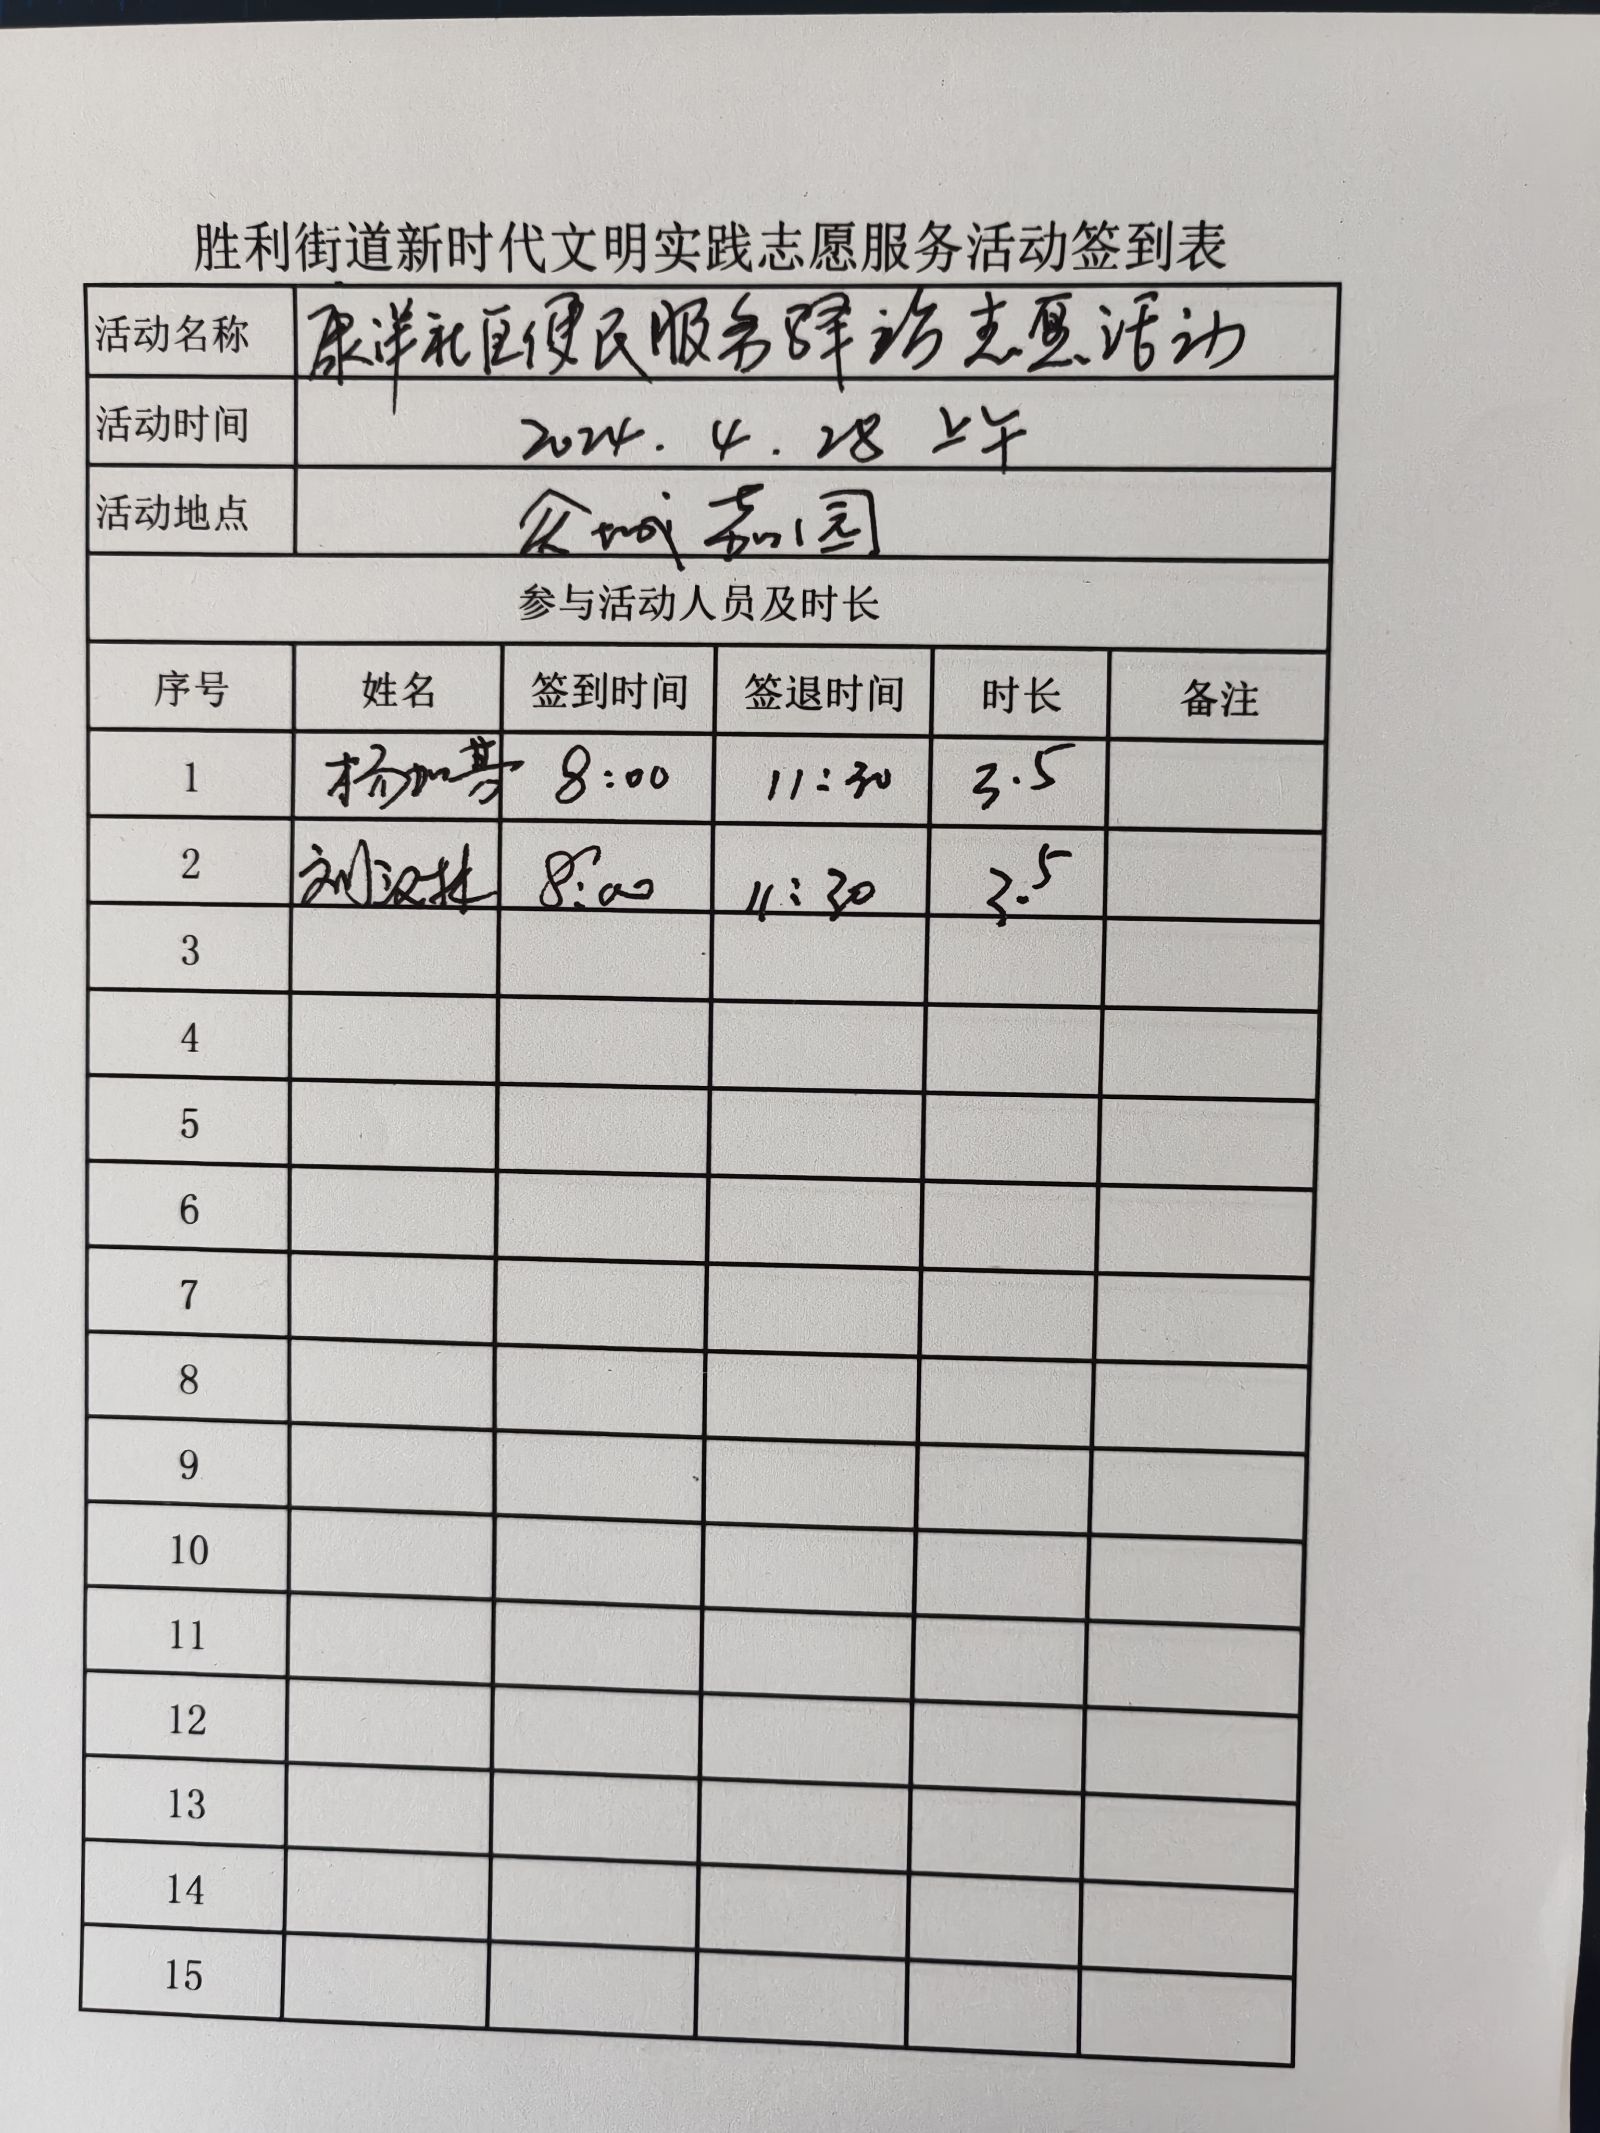 胜利街道新时代文明实践志愿服务活动签到表
活动名称 康洋社区便民服务驿站志愿活动
活动时间 2024.4.28 上午
活动地点 众城嘉园
参与活动人员及时长
序号 姓名 签到时间 签退时间 时长 备注
1 杨加 8:00 11:30 3.5
2 刘汉林 8:00 11:30 3.5
3
4
5
6
7
8
9
10
11
12
13
14
15